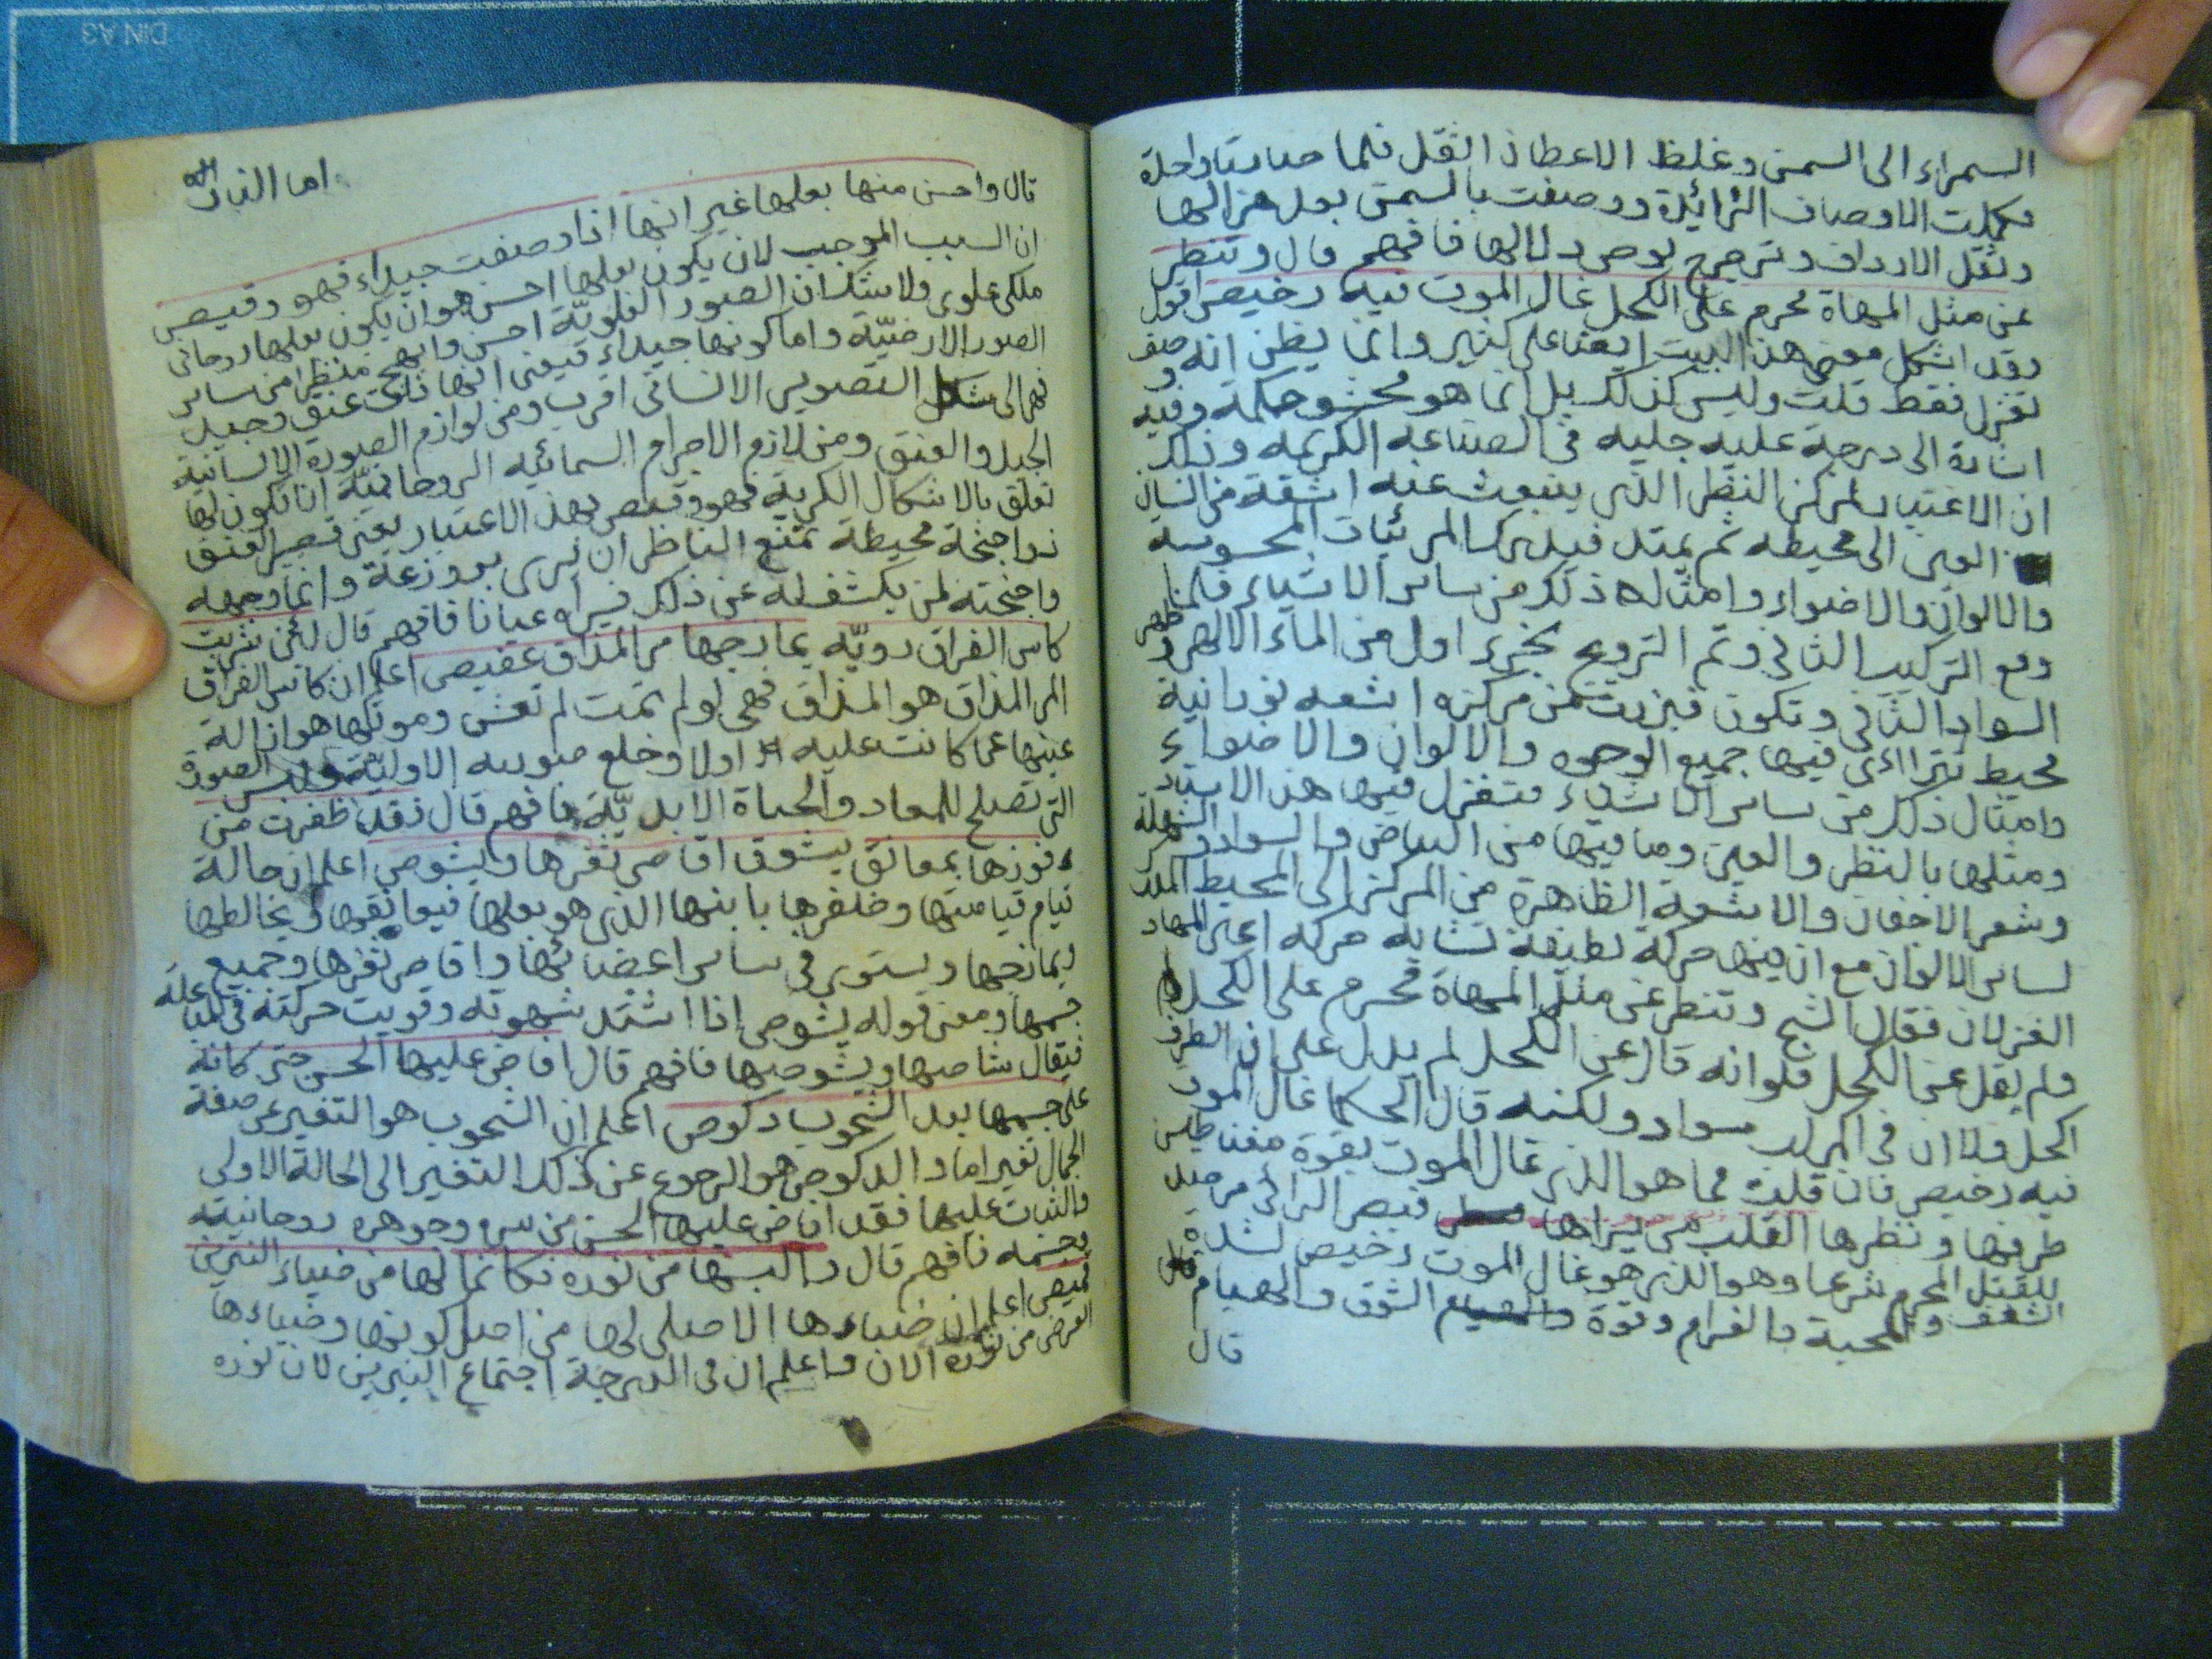 السمراء الى السمن وغلظ الاعطاف الثقل فلما صارتا واحدة
وكملت الاوصاف الزائدة ووصفت بالسمن بعد هزالها
وثقل الارداف وترجرج بوص دلالها فافهم قال وتنظر
عن مثل المهاة محرم على الكحل غال الموت فيه رخيص اقول
وقد اشكل معنى هذا البيت ايضا على كثير وانما يظن انه
تغزل فقط قلت وليس كذلك بل انما هو محشو حكمة وفيه
اشارة الى درجة علية جلية في الصناعة الكريمة وذلك
ان الاعتبار لمركز النظر الذي ينبعث عنه اشعة من انسان
العين الى محيطه ثم يمتد فيدرك المرئيات المحسوسة
والالوان والاضواء وامثال ذلك من سائر الاشياء فلما
وقع التركيب الثاني وتم التزويج بجزء اول من الماء الالهي وظهر
السواد الثاني وتكون فبرزت من مركزه اشعه نورانية
محيط تتراآى فيها جميع الوجوه والالوان والاضواء
وامثال ذلك من سائر الاشياء فتغزل فيها هذا الاستاد
ومثلها بالنظر والعين وما فيها من البياض والسواد والشهلة
وشعر الاجفان والاشعة الظاهرة من المركز الى المحيط
لسائر الالوان مع ان فيها حركة لطيفة تشابه حركة اعين المهاد
الغزلان فقال الشيخ وتنظر عن مثل المهاة محرم على الكحل
ولم يقل عن الكحل فلوانه قال عن الكحل لم يدل على ان الطرف
الكحل ولا ان في المراد سواد ولكنه قال الكحل غال الموت
فيه رخيص فان قلت فما هو الذي غال الموت بقوة مغناطيس
طرفها ونظرها القلب من يراها فيصر الرائى من
للقتل المحرم شرعا وهو الذي هو غال الموت رخيص لشدة
الشغف والمحبة والغرام وقوة الشوق والهيام فافهم
قال
اما النار
قال واحسن منها بعلها غير انها اذا وصفت جيداء فهو وقيص
ان السبب الموجب لان يكون بعلها احسن هو ان يكون بعلها روحانى
ملكى علوى ولا شك ان الصور العلويّة احسن وابهج منظرا من سائر
الصور الارضيّة واما كونها جيداء فيعنى انها ذات عنق وجيد
فهى الى شكل التصوير الانسانى اقرب ومن لوازم الصورة الانسانية
الجيد والعنق ومن لازم الاجرام السمائيه الروحانيّة ان تكون لها
تعلق بالاشكال الكرية فهو وقيص بهذا الاعتبار يعنى قصير العنق
ذو اجنحة محيطة تمنع الناظر ان يرى بروز عنقه وانما وجهه
واجنحته لمن يكشف له عن ذلك فيراه عيانا فافهم قال لئن شربت
كاس الفراق رويّه بما رجها مر المذاق عفيص اعلم ان كاس الفراق
المر المذاق هو المذاق فهى لو لم تمت لم تعش وموتها هو ازالة
عينها عما كانت عليه اولا وخلع صورته الاوليّة ولبس الصورة
التى تصلح للمعاد والحياة الابديّة فافهم قال فقد ظفرت من
فوزها بمعانق يشوق اقاصى ثغرها ويشوص اعلم ان حالة
قيام قيامتها وظفرها بابنها الذى هو بعلها فيعانقها ويخالطها
ويمازجها ويستوى في سائر اعضائها واقاصى ثغرها وجميع
جسمها ومعنى قوله يشوص اذا اشتد شهوته وقويت حركته في
فيقال شاصها ويشوصها فافهم قال افاض عليها الحسن حتى كانه
على جسمها بعد الشحوب دكوص اعلم ان الشحوب هو التغير عن صفة
الجمال تغيراما والدكوص هو الرجوع عن ذلك التغير الى الحالة الاولى
والثبات عليها فقد افاض عليها الحسن من سره وجوهره روحانيته
وجسمه فافهم قال والبسها من نوره فكانما لها من ضياء النيرين
قميص اعلم ان ضياءها الاصلى لها من اصل كونها وضياءها
العرضى من نوره الان واعلم ان في الدرجة اجتماع النيرين لان نوره